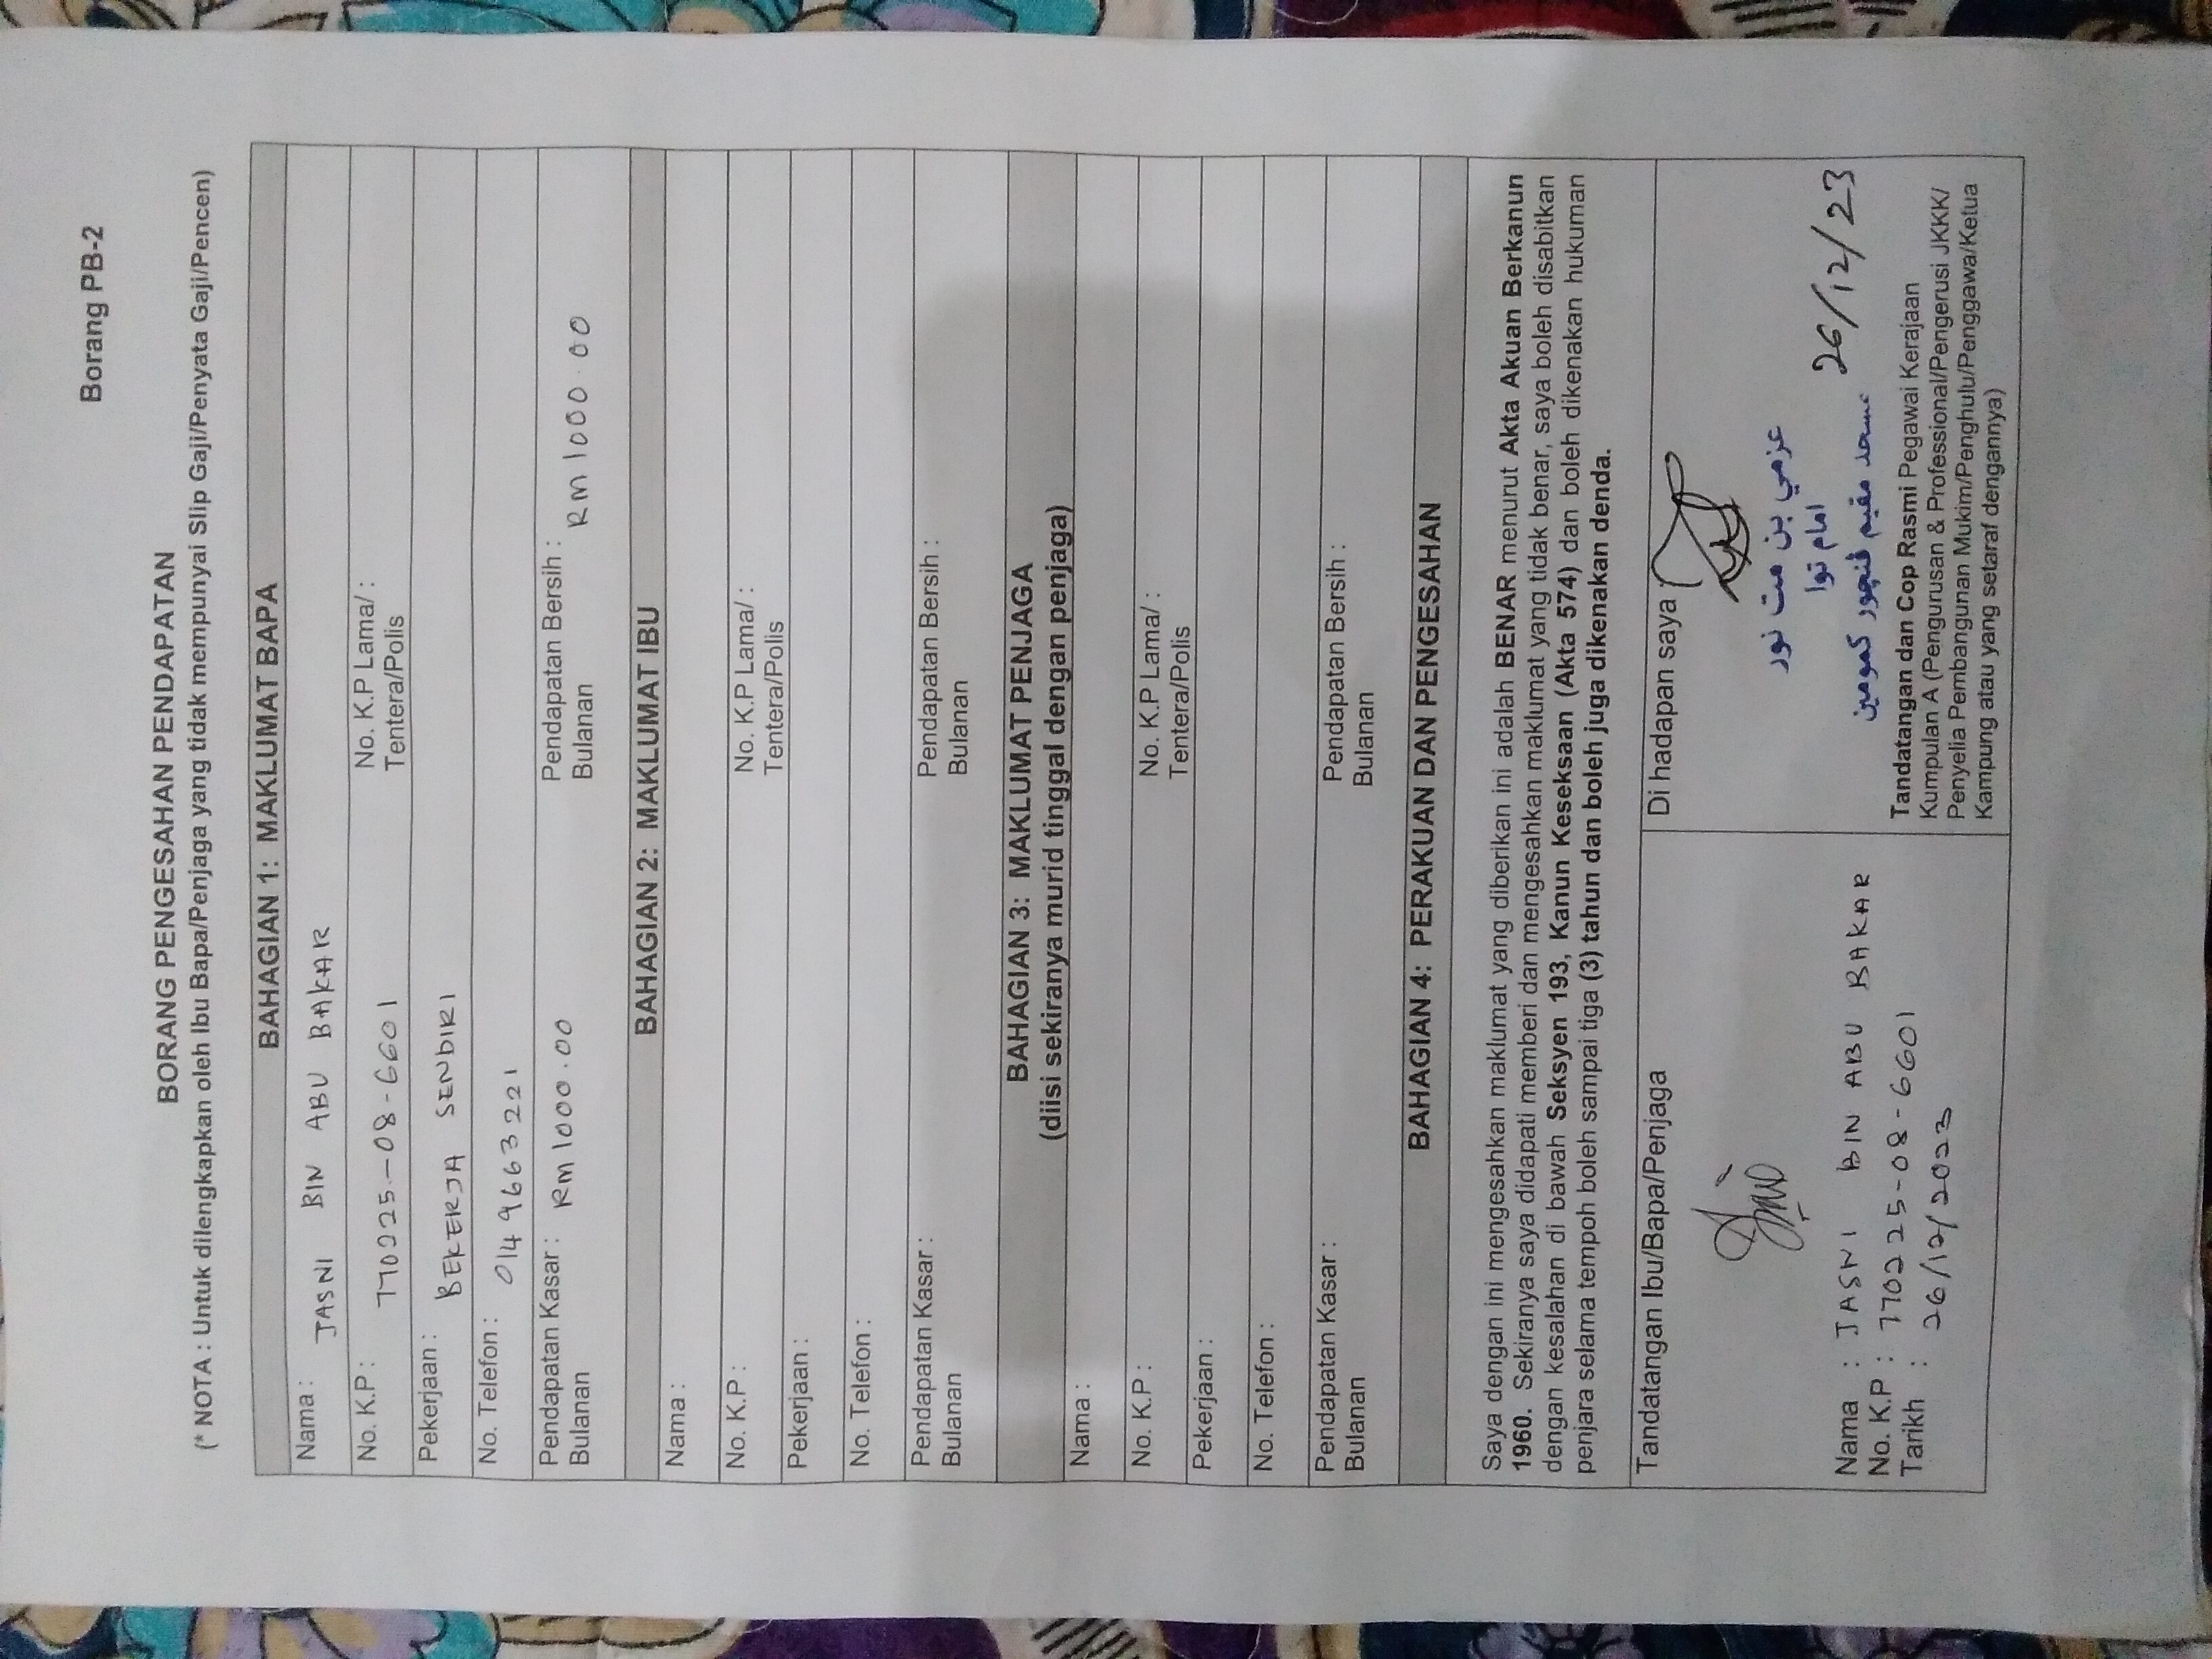 Borang PB-2
BORANG PENGESAHAN PENDAPATAN
(* NOTA : Untuk dilengkapkan oleh Ibu Bapa/Penjaga yang tidak mempunyai Slip Gaji/Penyata Gaji/Pencen)
BAHAGIAN 1: MAKLUMAT BAPA
Nama : JASNI BIN ABU BAKAR
No. K.P : 770225-08-6601 No. K.P Lama/ :
Tentera/Polis
Pekerjaan : BEKERJA SENDIRI
No. Telefon : 0149663221
Pendapatan Kasar : RM 1000.00 Pendapatan Bersih : RM 1000.00
Bulanan Bulanan
BAHAGIAN 2: MAKLUMAT IBU
Nama :
No. K.P : No. K.P Lama/ :
Tentera/Polis
Pekerjaan :
No. Telefon :
Pendapatan Kasar : Pendapatan Bersih :
Bulanan Bulanan
BAHAGIAN 3: MAKLUMAT PENJAGA
(diisi sekiranya murid tinggal dengan penjaga)
Nama :
No. K.P : No. K.P Lama/ :
Tentera/Polis
Pekerjaan :
No. Telefon :
Pendapatan Kasar : Pendapatan Bersih :
Bulanan Bulanan
BAHAGIAN 4: PERAKUAN DAN PENGESAHAN
Saya dengan ini mengesahkan maklumat yang diberikan ini adalah BENAR menurut Akta Akuan Berkanun
1960. Sekiranya saya didapati memberi dan mengesahkan maklumat yang tidak benar, saya boleh disabitkan
dengan kesalahan di bawah Seksyen 193, Kanun Keseksaan (Akta 574) dan boleh dikenakan hukuman
penjara selama tempoh boleh sampai tiga (3) tahun dan boleh juga dikenakan denda.
Tandatangan Ibu/Bapa/Penjaga
Nama : JASNI BIN ABU BAKAR
No. K.P : 770225-08-6601
Tarikh : 26/12/2023
Di hadapan saya :
عزمي بن مت نور
امام توا
مسجد مقيم ڤنچور كمومين
26/12/23
Tandatangan dan Cop Rasmi Pegawai Kerajaan
Kumpulan A (Pengurusan & Professional/Pengerusi JKKK/
Penyelia Pembangunan Mukim/Penghulu/Penggawa/Ketua
Kampung atau yang setaraf dengannya)